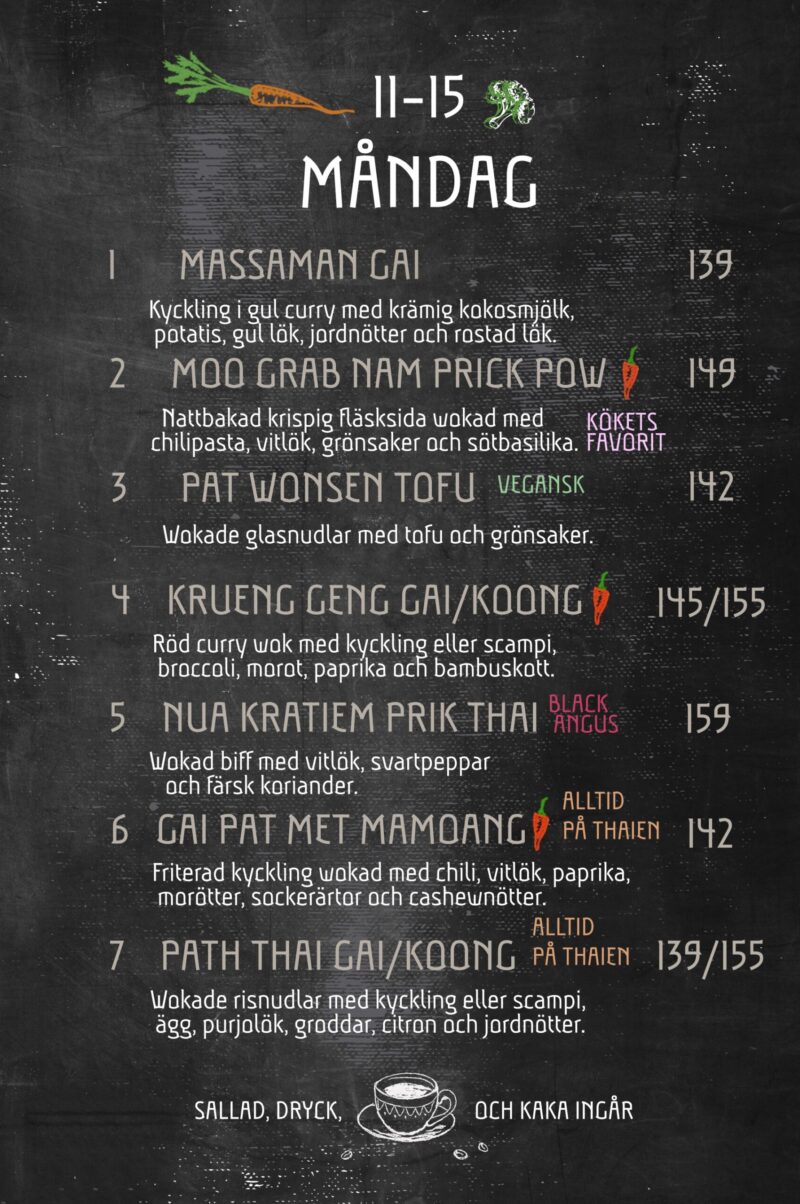 11-15
MÅNDAG
1 MASSAMAN GAI 139
Kyckling i gul curry med krämig kokosmjölk,
potatis, gul lök, jordnötter och rostad lök.
2 MOO GRAB NAM PRICK POW 149
Nattbakad krispig fläsksida wokad med
chilipasta, vitlök, grönsaker och sötbasilika.
KÖKETS
FAVORIT
3 PAT WONSEN TOFU VEGANSK 142
Wokade glasnudlar med tofu och grönsaker.
4 KRUENG GENG GAI/KOONG 145/155
Röd curry wok med kyckling eller scampi,
broccoli, morot, paprika och bambuskott.
5 NUA KRATIEM PRIK THAI 159
BLACK
ANGUS
Wokad biff med vitlök, svartpeppar
och färsk koriander.
6 GAI PAT MET MAMOANG 142
ALLTID
PÅ THAIEN
Friterad kyckling wokad med chili, vitlök, paprika,
morötter, sockerärtor och cashewnötter.
7 PATH THAI GAI/KOONG 139/155
ALLTID
PÅ THAIEN
Wokade risnudlar med kyckling eller scampi,
ägg, purjolök, groddar, citron och jordnötter.
SALLAD, DRYCK, OCH KAKA INGÅR